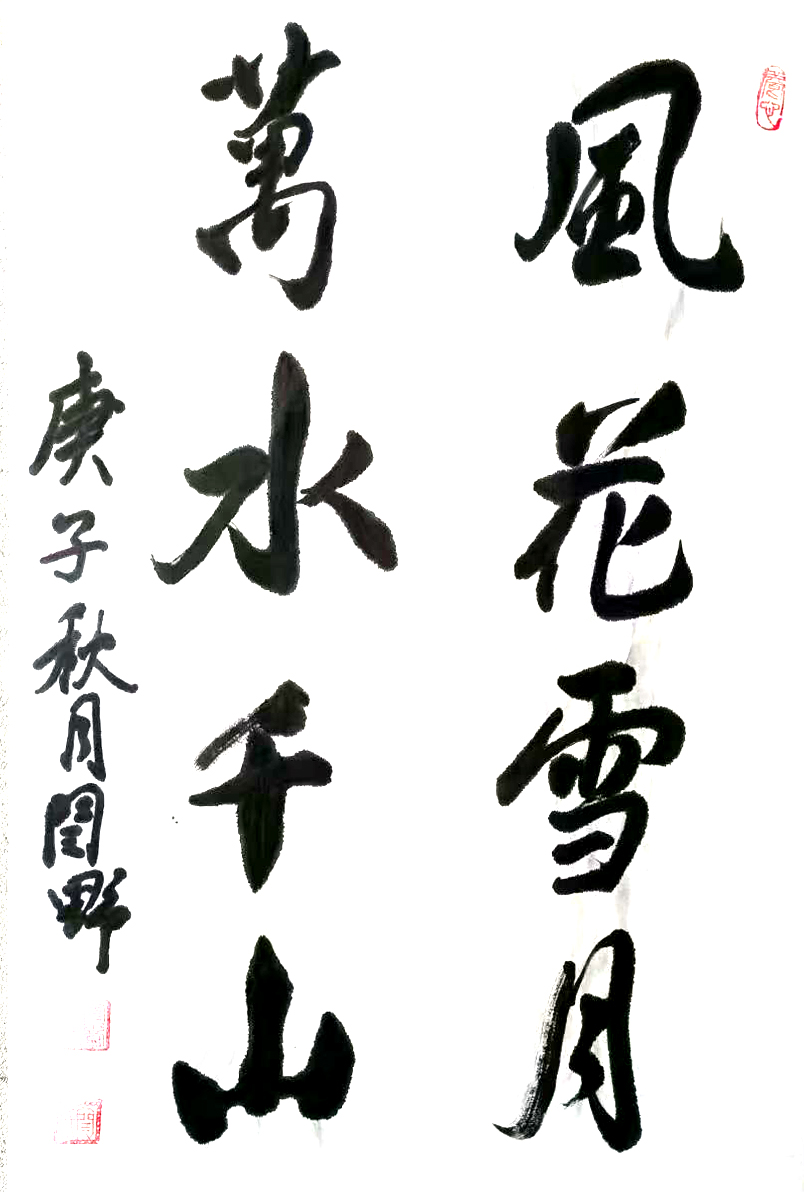 風花雪月
萬水千山
庚子秋月閏野